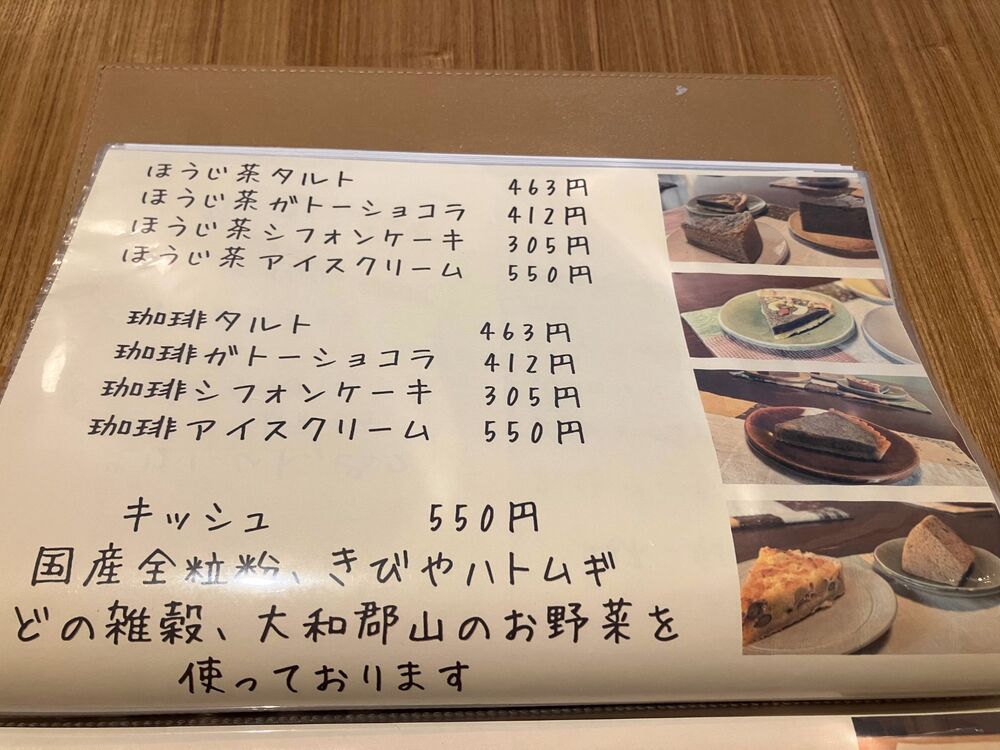 ほうじ茶タルト 463円
ほうじ茶ガトーショコラ 412円
ほうじ茶シフォンケーキ 305円
ほうじ茶アイスクリーム 550円
珈琲タルト 463円
珈琲ガトーショコラ 412円
珈琲シフォンケーキ 305円
珈琲アイスクリーム 550円
キッシュ 550円
国産全粒粉、きびやハトムギ
どの雑穀、大和郡山のお野菜を
使っております